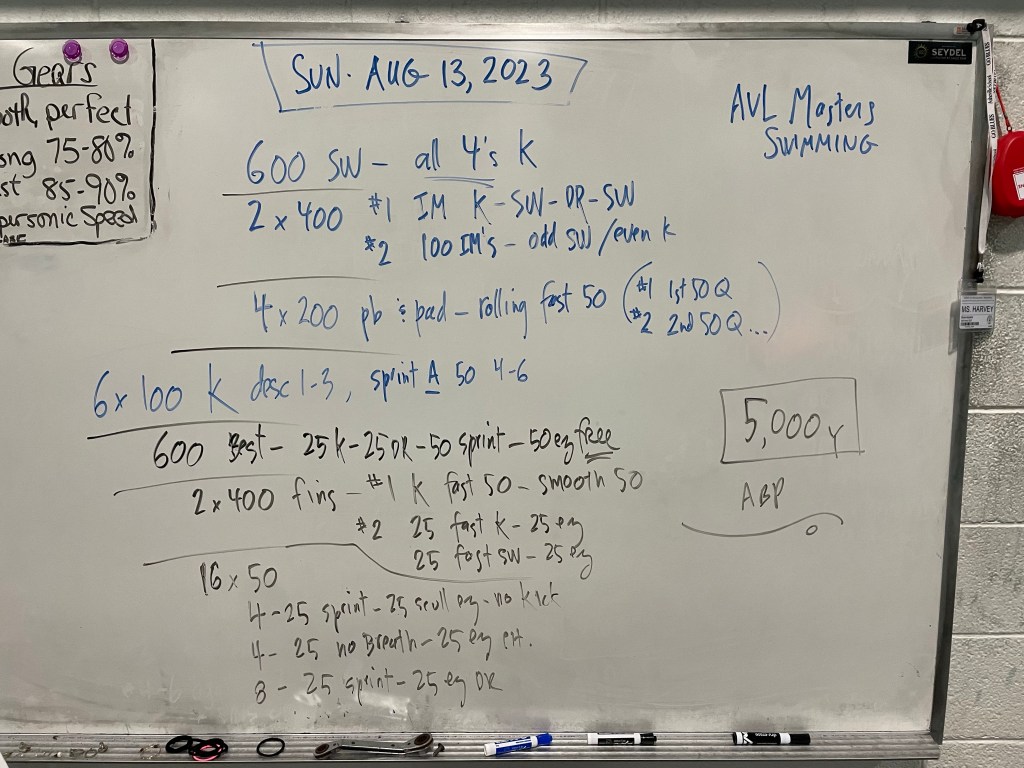 Gears
perfect
75-80%
85-90%
Speed
SUN. AUG 13, 2023
SEYDEL
AVL Masters
SWIMMING
600 SW - all 4's K
2 x 400 #1 IM K-SW-DR-SW
#2 100 IM's - odd SW/even K
4 x 200 pb & pad - rolling fast 50 (#1 1st 50 Q
#2 2nd 50 Q...)
6 x 100 K desc 1-3, sprint A 50 4-6
600 Best - 25 K - 25 DR - 50 sprint - 50 ez free
2 x 400 fins - #1 K fast 50 - smooth 50
#2 25 fast K - 25 ez
25 fast SW - 25 ez
16 x 50
4 - 25 sprint - 25 scull ez - no kick
4 - 25 no Breath - 25 ez
8 - 25 sprint - 25 ez DR
5,000 Y
ABP
MS. HARVEY